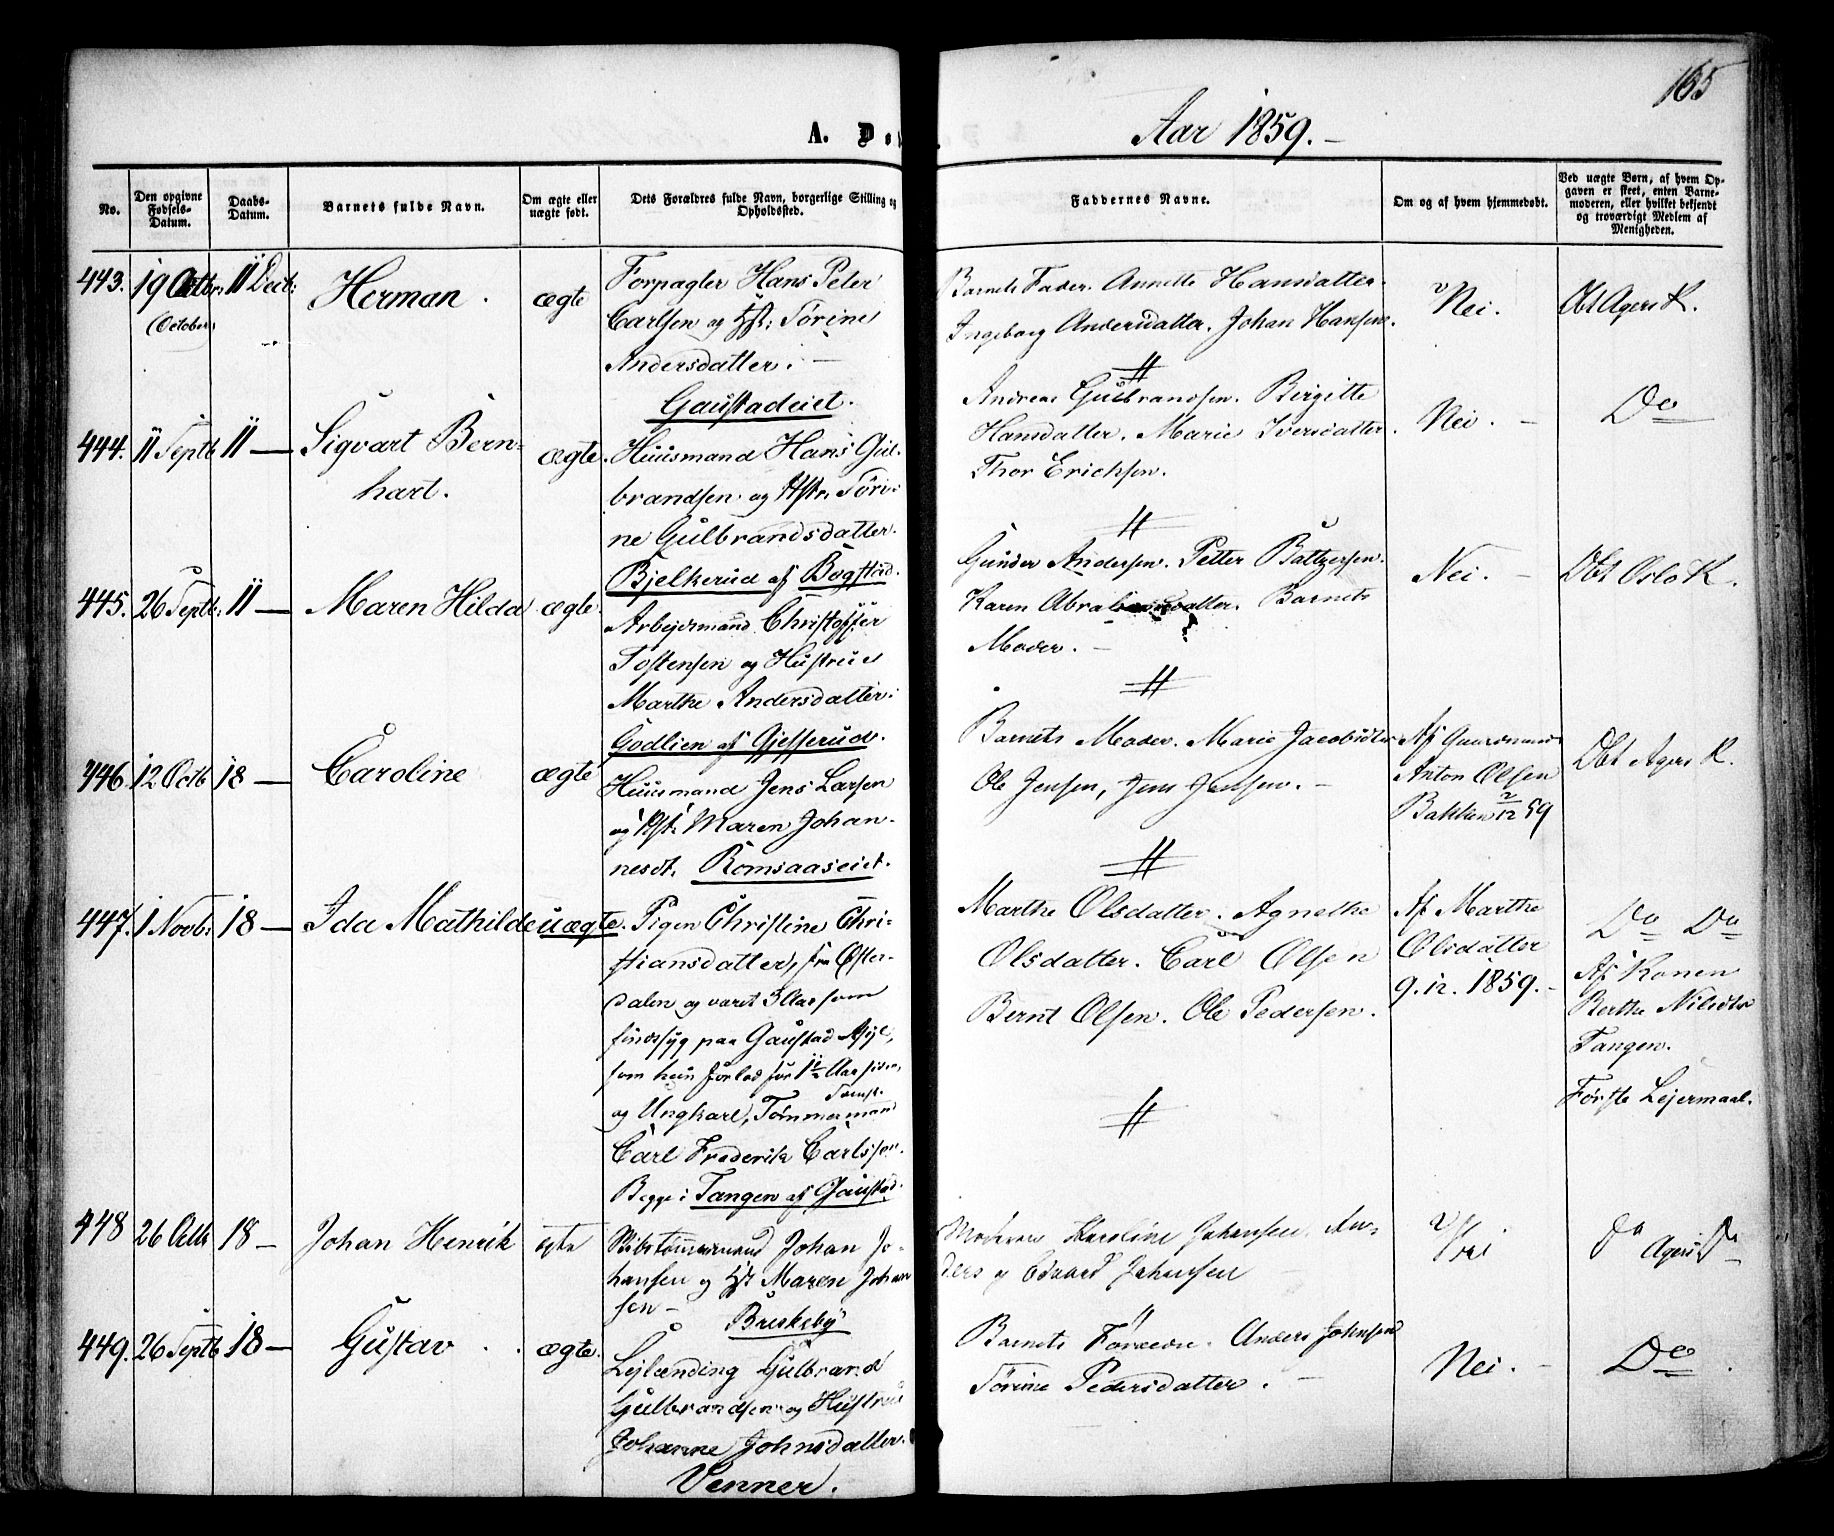 165
A. D
Aar 1859.-
No.
Den opgivne Fødsels-Datum.
Daabs-Datum.
Barnets fulde Navn.
Om ægte eller uægte født.
Dets Forældres fulde Navn, borgerlige Stilling og Opholdssted.
Faddernes Navne.
Om og af hvem hjemmedøbt.
Ved uægte Børn, af hvem Opgaven er skeet, enten Barnemoderen, eller hvilket bekjendt og troværdigt Medlem af Menigheden.
443. 19 Octbr: 11 Decb: Herman. ægte
(October)
Forpagter Hans Peter
Carlsen og Hst: Sørine
Andersdatter. -
Gaustadeiet.
Barnets Fader. Annette Hansdatter.
Ingeborg Andersdatter. Johan Hansen.
Nei.
Dbt Agers K.
444. 11 Septb 11 — Sigvart Bern-
hart.
ægte.
Huusmand Hans Gul-
brandsen og Hstr: Søri-
ne Gulbrandsdatter.
Bjelkerud af Bogstad.
Andreas Gulbrandsen. Birgitte
Hansdatter. Marie Iversdatter.
Thor Erichsen.
Nei. -
Do
445. 26 Septb: 11 — Maren Hilda ægte.
Arbejdsmand Christoffer
Tostensen og Hustrue
Marthe Andersdatter:
Godlien af Gjefferud.
Gunder Andersen. Petter Baltzersen.
Karen Abrahamsdatter. Barnets
Moder. -
Nei. -
Dbt Oslo K.
446. 12 Octb 18 — Caroline ægte
Huusmand Jens Larsen
og Hst: Maren Johan-
nesdt. Romsaaseiet.
Barnets Moder. Marie Jacobsdtr
Ole Jensen, Jens Jensen. -
Af Gaardmand
Anton Olsen
Bakken 2/12 59
Dbt Agers K.
447. 1 Novb: 18 — Ida Mathilde uægte.
Pigen Christine Chri-
stiansdatter, fra Øster-
dalen og været 3 Aar som
sindssyg paa Gaustad Asyl,
som hun forlod for 1 1/2 Aar siden,
og Ungkarl, Tømmermand
Carl Frederik Carlsson.
Begge i Tangen af Gaustad.
Marthe Olsdatter. Agnethe
Olsdatter. Carl Olsen
Bernt Olsen. Ole Pedersen.
Af Marthe
Olsdatter
9.12. 1859. -
Do Do
Af Konen
Berthe Nilsdtr
Tangen.
Første Lejermaal.
448 26 Octb 18 — Johan Henrik ægte
Skibstømmermand Johan Jo-
hansen og Hst Maren Johan
sen -
Briskeby
Moderen Karoline Johansen, An-
ders og Edvard Johansen
Nei
Do Agers Do
449. 26 Septb 18 — Gustav. ægte.
Lejlænding Gulbrand
Gulbrandsen og Hustrue
Johanne Johnsdatter.
Venner.
Barnets Forældre. Anders Johnsen
Sørine Pedersdatter. -
Nei. -
Do.